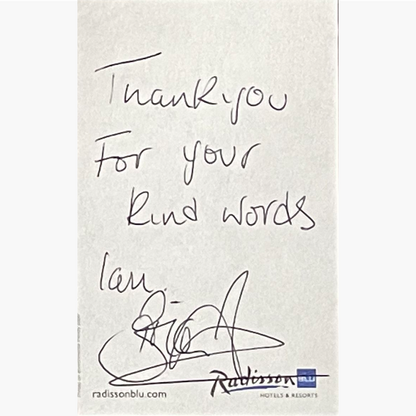 Thankyou
For your
kind words
Ian.
Radisson BLU
HOTELS & RESORTS
radissonblu.com